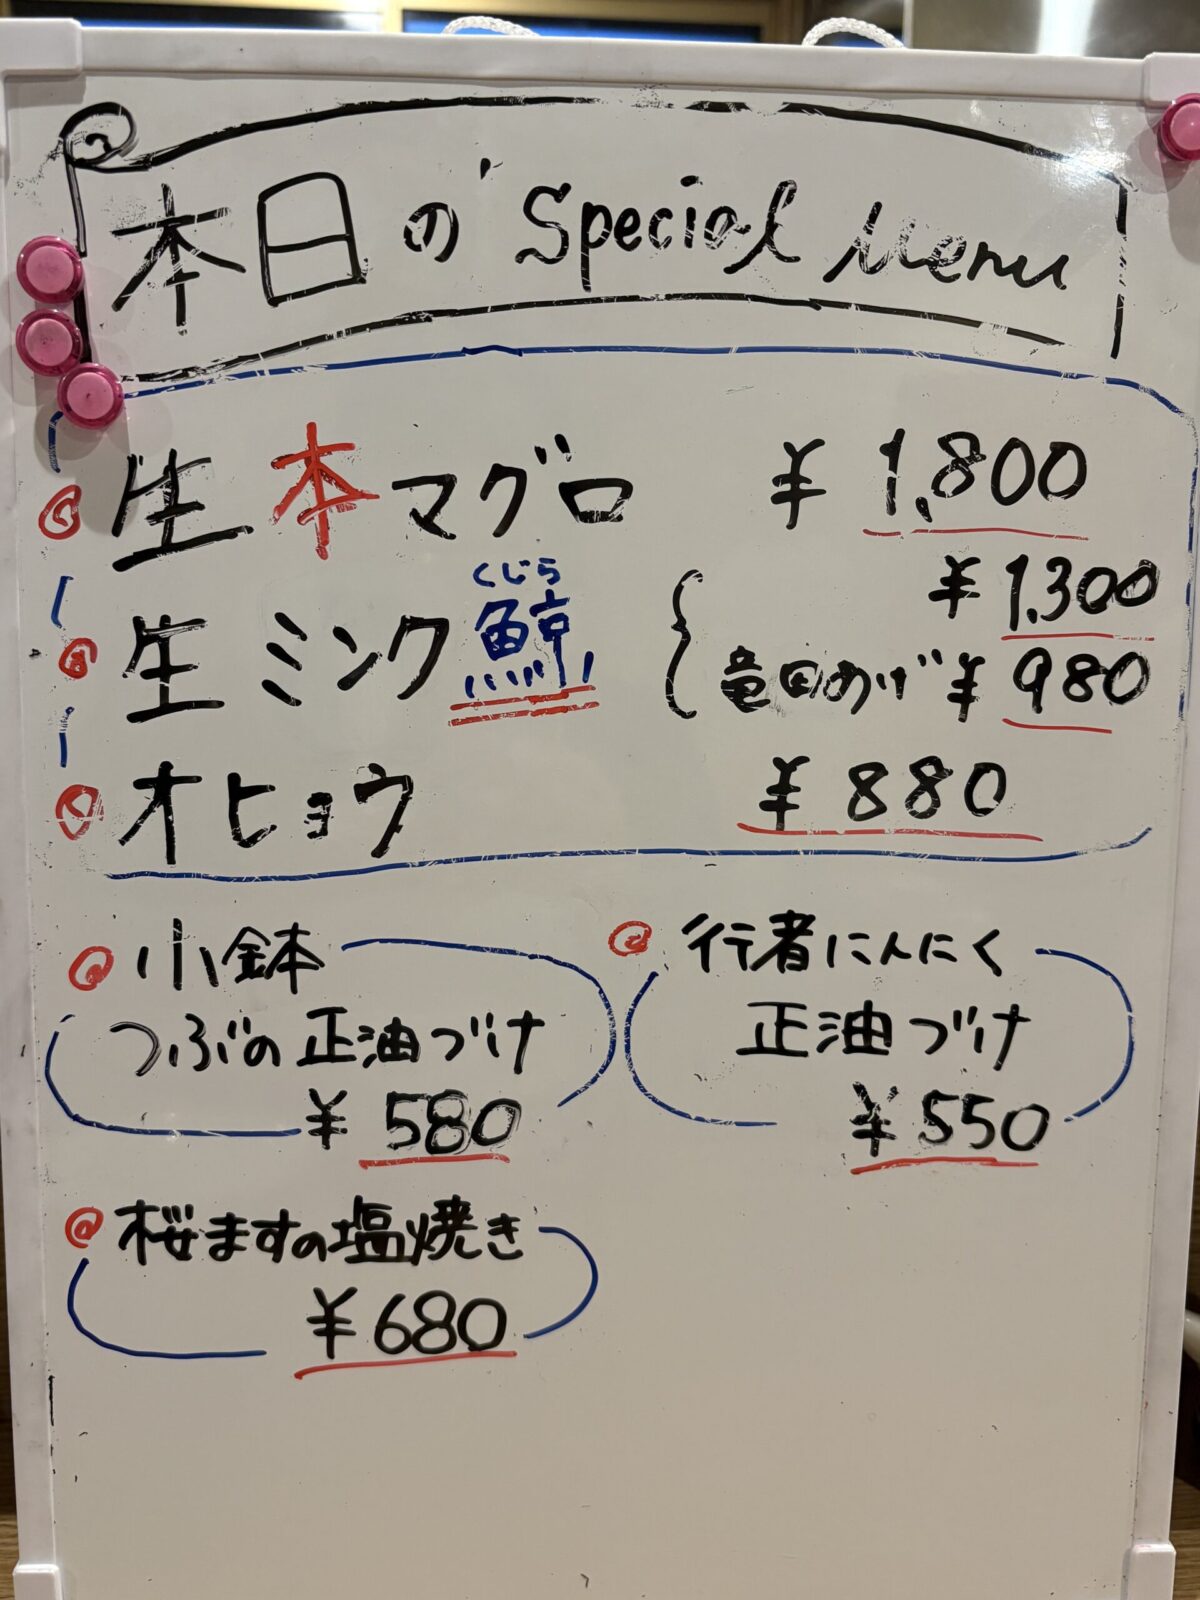 本日の Special Menu
生本マグロ ¥1,800
くじら
生ミンク鯨 ¥1,300
竜田あげ ¥980
オヒョウ ¥880
小鉢
つぶの正油づけ
¥580
行者にんにく
正油づけ
¥550
桜ますの塩焼き
¥680